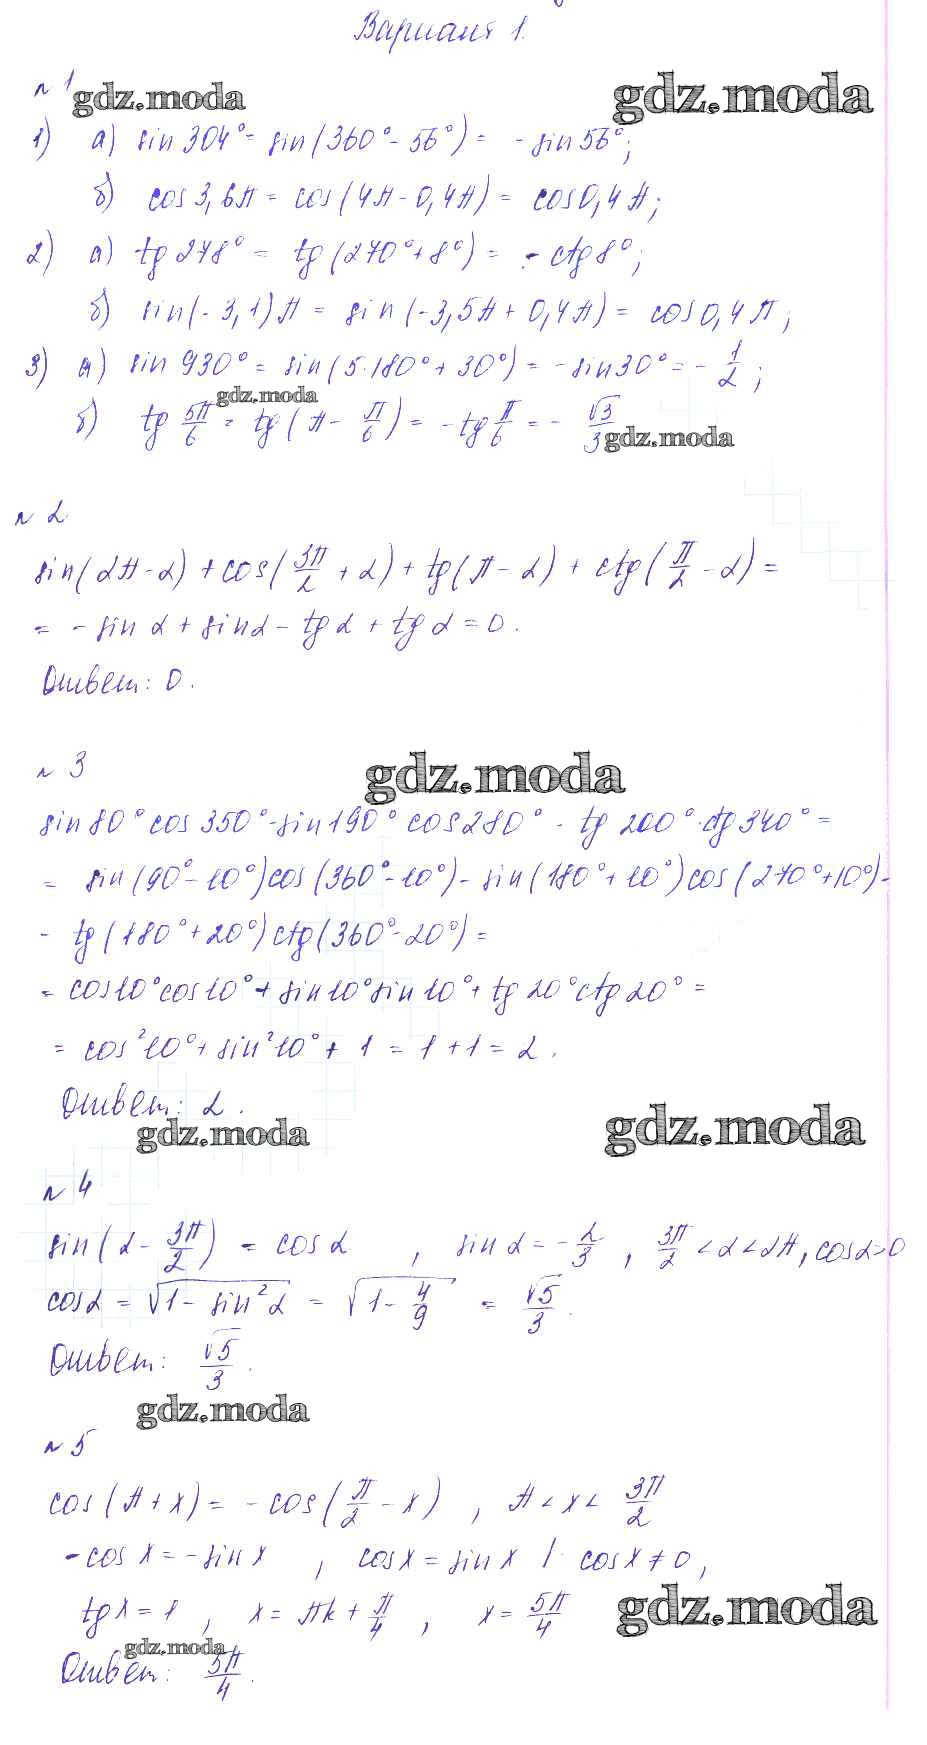 Вариант 1.
№ 1
gdz.moda gdz.moda
1) а) sin 304° = sin(360° - 56°) = - sin 56°;
б) cos 3,6π = cos(4π - 0,4π) = cos 0,4π;
2) а) tg 278° = tg(270° + 8°) = - ctg 8°;
б) sin(-3,1)π = sin(-3,5π + 0,4π) = cos 0,4π;
3) а) sin 930° = sin(5·180° + 30°) = - sin 30° = - 1/2;
gdz.moda
б) tg 5π/6 = tg(π - π/6) = - tg π/6 = - √3/3
gdz.moda
№ 2
sin(2π - α) + cos(3π/2 + α) + tg(π - α) + ctg(π/2 - α) =
= - sin α + sin α - tg α + tg α = 0.
Ответ: 0.
№ 3
gdz.moda
sin 80° cos 350° - sin 190° cos 280° - tg 200° · ctg 340° =
= sin(90° - 10°) cos(360° - 10°) - sin(180° + 10°) cos(270° + 10°) -
- tg(180° + 20°) ctg(360° - 20°) =
= cos 10° cos 10° + sin 10° sin 10° + tg 20° ctg 20° =
= cos²10° + sin²10° + 1 = 1 + 1 = 2.
Ответ: 2.
gdz.moda gdz.moda
№ 4
sin(α - 3π/2) = cos α, sin α = - 2/3, 3π/2 < α < 2π, cos α > 0
cos α = √(1 - sin²α) = √(1 - 4/9) = √5/3.
Ответ: √5/3.
gdz.moda
№ 5
cos(π + x) = - cos(π/2 - x), π < x < 3π/2
- cos x = - sin x, cos x = sin x | : cos x ≠ 0,
tg x = 1, x = πk + π/4, x = 5π/4
gdz.moda
gdz.moda
Ответ: 5π/4.